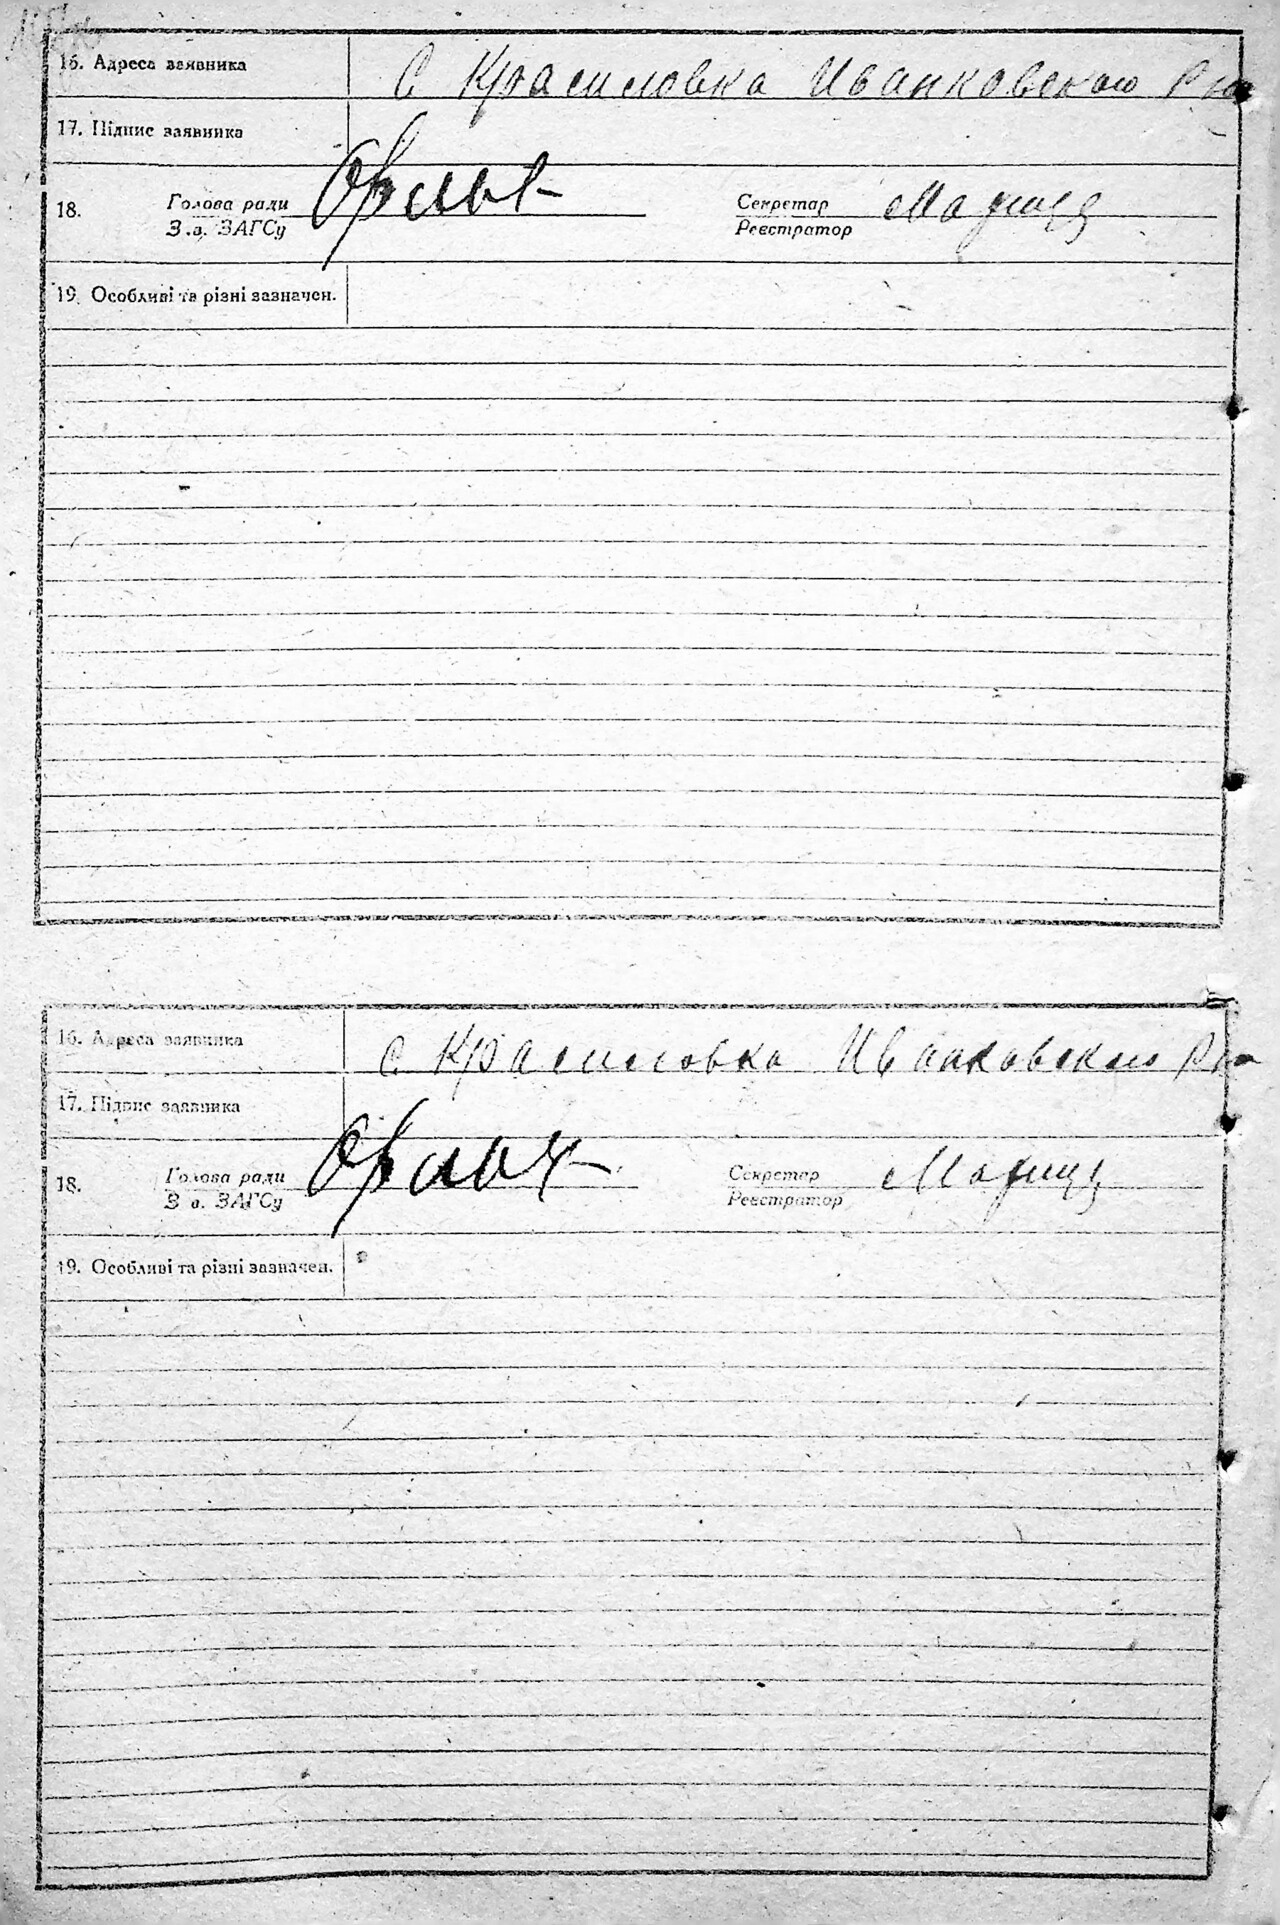 16. Адреса заявника С Красиловка Иванковского р на
17. Підпис заявника
18. Голова ради Секретар
З.в. ЗАГСу Реєстратор
19. Особливі та різні зазначен.
16. Адреса заявника с Красиловка Иванковского р на
17. Підпис заявника
18. Голова ради Секретар
З в. ЗАГСу Реєстратор
19. Особливі та різні зазначен.